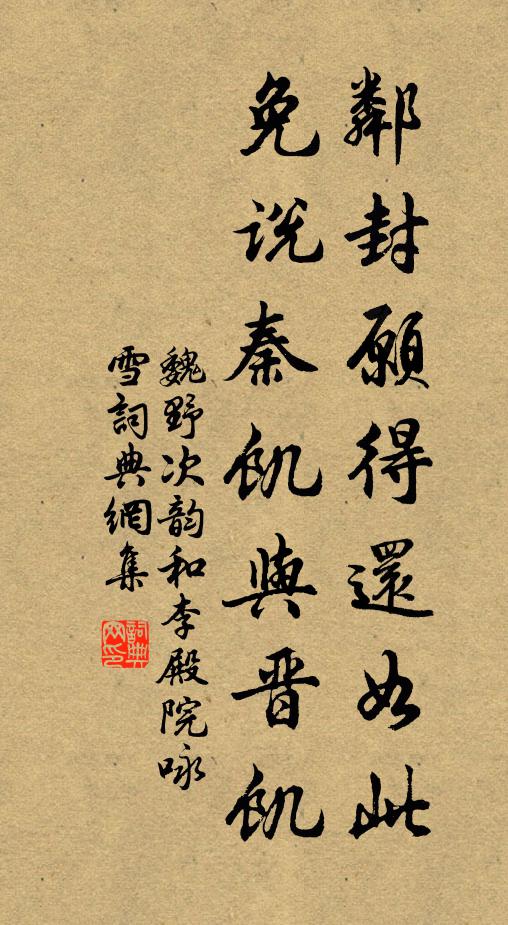 鄰封願得還如此
免説秦飢與晋飢
魏野次韵和李殿院咏
雪詞典網集
詞典
网印